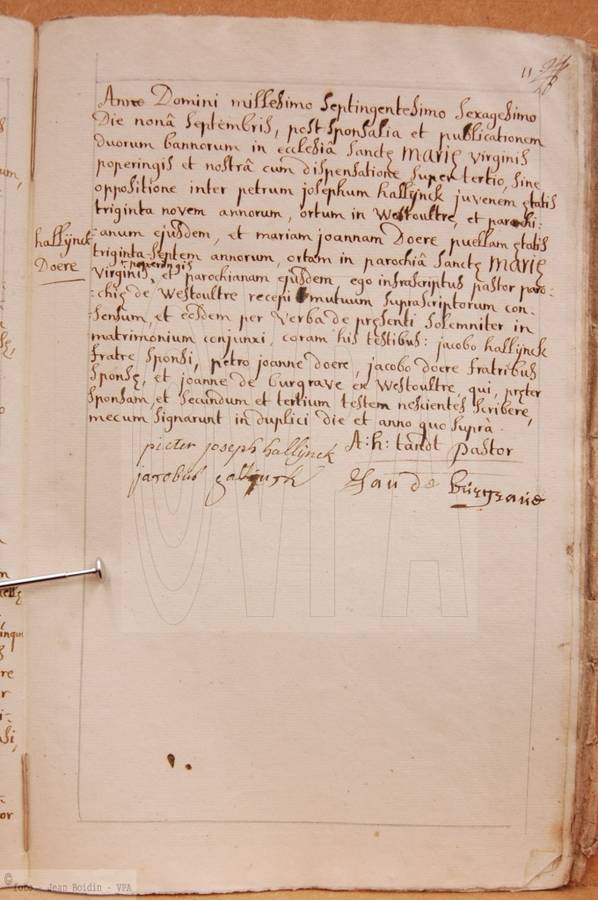 Anno Domini millesimo Septingentesimo Sexagesimo
Die nonâ Septembris, post Sponsalia et publicationem
duorum bannorum in ecclesiâ Sanctę Marię virginis
poperingis et nostrâ cum dispensatione super tertio, Sine
oppositione inter petrum josephum hallijnck juvenem ętatis
triginta novem annorum, ortum in Westoultre, et parochi:
:anum ejusdem, et mariam joannam Doere puellam ętatis
hallijnck
Doere
triginta Septem annorum, ortam in parochiâ Sanctę Marię
Virginis poperingis, et parochianam ejusdem ego infrascriptus pastor paro:
:chię de Westoultre recepi mutuum suprascriptorum con:
:Sensum, et eosdem per Verba de pręsenti Solemniter in
matrimonium conjunxi, coram his testibus: jacobo hallijnck
fratre Sponsi, petro joanne doere, jacobo doere fratribus
Sponsę, et joanne de burgrave ex Westoultre, qui, pręter
Sponsam, et Secundum et tertium testem nescientes Scribere,
mecum Signarunt in duplici die et anno quo Suprà.
pieter joseph hallijnck A:h: tandt pastor
jacobus Jan de burgrave
© foto - Jean Boidin - VPA
VPA